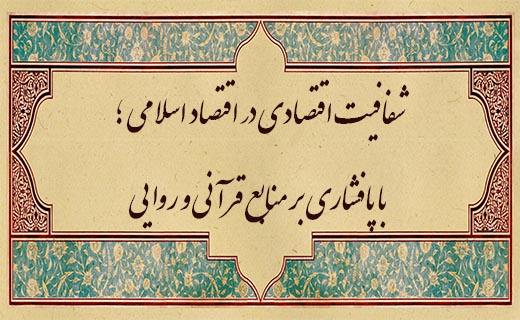 شفافیت اقتصادی در اقتصاد اسلامی ؛
با پافشاری بر منابع قرآنی و روایی